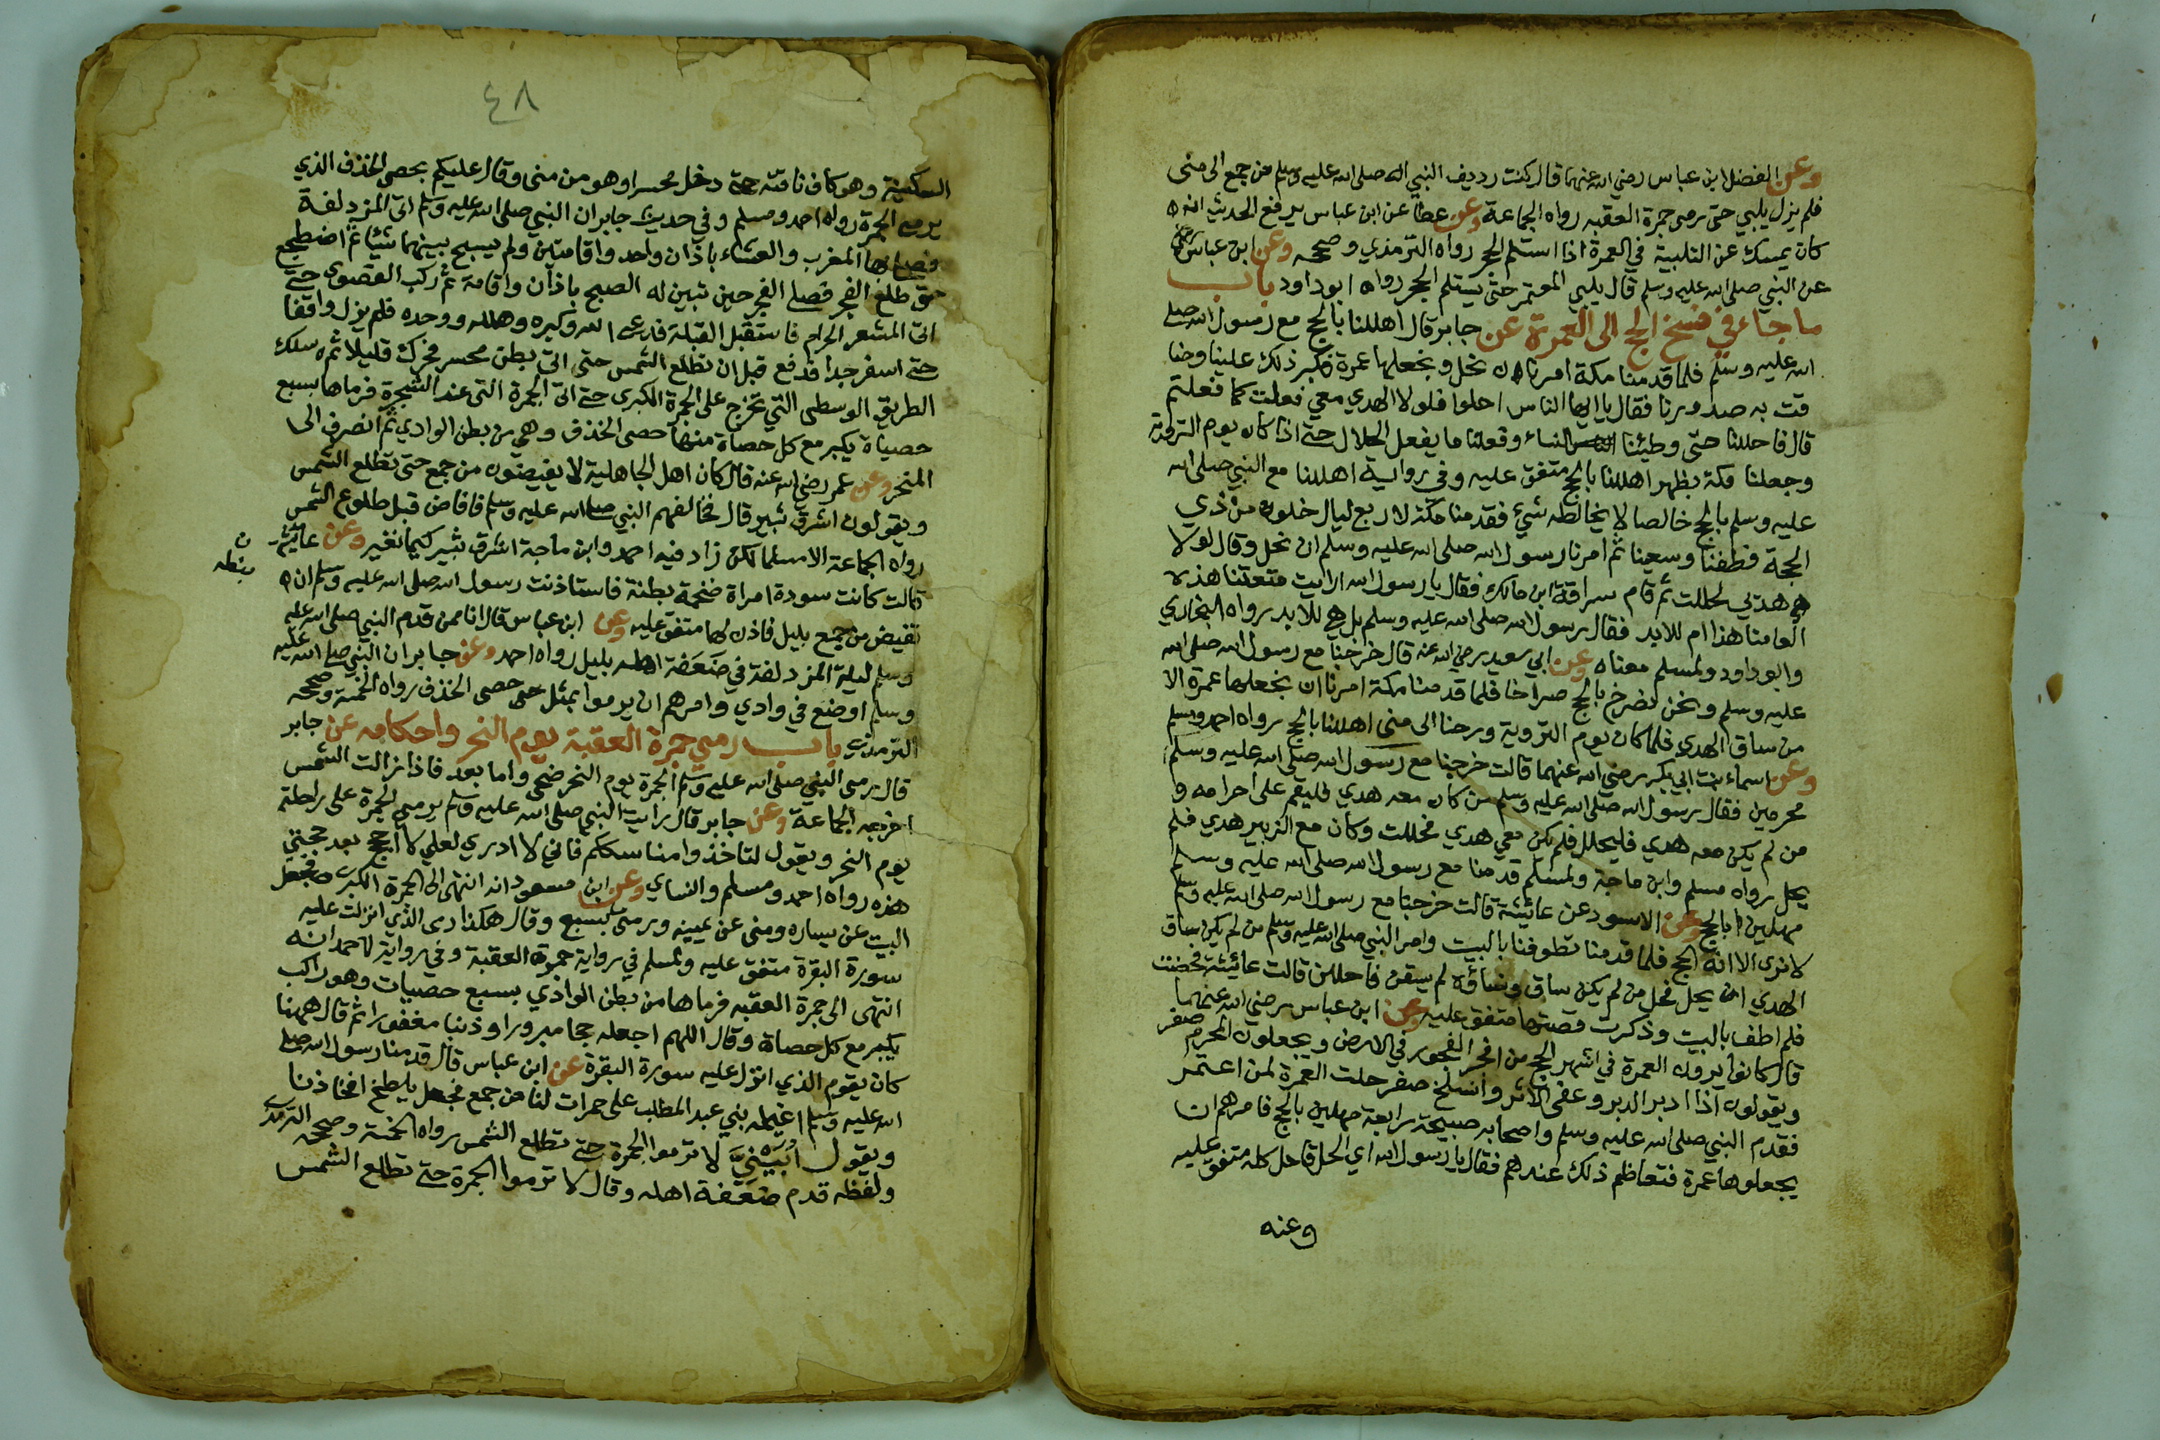 وعن الفضل ابن عباس رضي الله عنهما قال كنت رديف النبي صلى الله عليه وسلم من جمع الى منى
فلم يزل يلبي حتى رمى جمرة العقبه رواه الجماعة وعن عطا عن ابن عباس يرفع الحديث انه
كان يمسك عن التلبية في العمرة اذا استلم الحجر رواه الترمذي وصححه وعن ابن عباس
عن النبي صلى الله عليه وسلم قال يلبي المعتمر حتى يستلم الحجر رواه ابوداود باب
ما جاء في فسخ الحج الى العمرة عن جابر قال اهللنا بالحج مع رسول الله صلى
الله عليه وسلم فلما قدمنا مكة امرنا ان نحل ونجعلها عمرة فكبر ذلك علينا وضا
قت به صدورنا فقال يا ايها الناس احلوا فلولا الهدي معي فعلت كما فعلتم
قال فاحللنا حتى وطئنا النساء وفعلنا ما يفعل الحلال حتى اذا كان يوم التروية
وجعلنا مكة بظهر اهللنا بالحج متفق عليه وفي رواية اهللنا مع النبي صلى الله
عليه وسلم بالحج خالصا لا يخالطه شيء فقدمنا مكة لاربع ليال خلون من ذي
الحجة فطفنا وسعينا ثم امرنا رسول الله صلى الله عليه وسلم ان نحل وقال لولا
هديي لحللت ثم قام سراقة ابن مالك فقال يا رسول الله ارايت متعتنا هذه
العامنا هذا ام للابد فقال رسول الله صلى الله عليه وسلم بل هي للابد رواه البخاري
وابوداود ولمسلم معناه وعن ابي سعيد رضي الله عنه قال خرجنا مع رسول الله صلى الله
عليه وسلم ونحن نصرخ بالحج صراخا فلما قدمنا مكة امرنا ان نجعلها عمرة الا
من ساق الهدي فلما كان يوم التروية ورحنا الى منى اهللنا بالحج رواه احمد ومسلم
وعن اسماء بنت ابي بكر رضي الله عنهما قالت خرجنا مع رسول الله صلى الله عليه وسلم
محرمين فقال رسول الله صلى الله عليه وسلم من كان معه هدي فليقم على احرامه و
من لم يكن معه هدي فليحلل فلم يكن معي هدي فحللت وكان مع الزبير هدي فلم
يحل رواه مسلم وابن ماجة ولمسلم قدمنا مع رسول الله صلى الله عليه وسلم
مهلين بالحج وعن الاسود عن عائشة قالت خرجنا مع رسول الله صلى الله عليه وسلم
لا نرى الا انه الحج فلما قدمنا تطوفنا بالبيت وامر النبي صلى الله عليه وسلم من لم يكن ساق
الهدي ان يحل فحل من لم يكن ساق ونساؤه لم يسقن فاحللن قالت عائشة فحضت
فلم اطف بالبيت وذكرت قصتها متفق عليه وعن ابن عباس رضي الله عنهما
قال كانوا يرون العمرة في اشهر الحج من افجر الفجور في الارض ويجعلون المحرم صفر
ويقولون اذا ادبر الدبر وعفى الاثر وانسلخ صفر حلت العمرة لمن اعتمر
فقدم النبي صلى الله عليه وسلم واصحابه صبيحة رابعة مهلين بالحج فامرهم ان
يجعلوها عمرة فتعاظم ذلك عندهم فقال يا رسول الله اي الحل قا حل كله متفق عليه
وعنه
٤٨
السكينة وهو كاف ناقته حتى دخل محسرا وهو من منى وقال عليكم بحصى الخذف الذي
يرمى الجمرة رواه احمد ومسلم وفي حديث جابر ان النبي صلى الله عليه وسلم اتى المزدلفة
فصلى بها المغرب والعشاء باذان واحد واقامتين ولم يسبح بينهما شيئا ثم اضطجع
حتى طلع الفجر فصلى الفجر حين تبين له الصبح باذان واقامة ثم ركب القصوى حتى
اتى المشعر الحرام فاستقبل القبلة فدعى الله وكبره وهلله ووحده فلم يزل واقفا
حتى اسفر جدا فدفع قبل ان تطلع الشمس حتى اتى بطن محسر فحرك قليلا ثم سلك
الطريق الوسطى التي تخرج على الجمرة الكبرى حتى اتى الجمرة التي عند الشجرة فرماها بسبع
حصياة يكبر مع كل حصاة منها حصى الخذف وهي من بطن الوادي ثم انصرف الى
المنحر وعن عمر رضي الله عنه قال كان اهل الجاهلية لا يفيضون من جمع حتى تطلع الشمس
ويقولون اشرق ثبير قال فخالفهم النبي صلى الله عليه وسلم فافاض قبل طلوع الشمس
رواه الجماعة الا مسلما لكن زاد فيه احمد وابن ماجة اشرق ثبير كيما نغير وعن عايشة
ن
ثبطه
قالت كانت سودة امراة ضخمة بطنة فاستاذنت رسول الله صلى الله عليه وسلم ان
تفيض من جمع بليل فاذن لها متفق عليه وعن ابن عباس قال انا ممن قدم النبي صلى الله عليه
وسلم ليلة المزدلفة في ضعفة اهله بليل رواه احمد وعن جابر ان النبي صلى الله عليه
وسلم اوضع في وادي وامرهم ان يرموا بمثل حصى الخذف رواه الخمسة وصححه
الترمذي باب رمي جمرة العقبة يوم النحر واحكامه عن جابر
قال رمى النبي صلى الله عليه وسلم الجمرة يوم النحر ضحى واما بعد فاذا زالت الشمس
اخرجه الجماعة وعن جابر قال رايت النبي صلى الله عليه وسلم يرمي الجمرة على راحلته
يوم النحر ويقول لتاخذوا مناسككم فاني لا ادري لعلي لا احج بعد حجتي
هذه رواه احمد ومسلم والنساي وعن ابن مسعود انه انتهى الى الجمرة الكبرى فجعل
البيت عن يساره ومنى عن يمينه ورمى بسبع وقال هكذا رمى الذي انزلت عليه
سورة البقرة متفق عليه ولمسلم في رواية جمرة العقبة وفي رواية لاحمد انه
انتهى الى جمرة العقبه فرماها من بطن الوادي بسبع حصيات وهو راكب
يكبر مع كل حصاة وقال اللهم اجعله حجا مبرورا وذنبا مغفورا ثم قال ههنا
كان يقوم الذي انزل عليه سورة البقرة عن ابن عباس قال قدمنا رسول الله صلى
الله عليه وسلم اغيلمه بني عبد المطلب على حمرات لنا من جمع فجعل يلطخ افخاذنا
ويقول ابيني لا ترموا الجمرة حتى تطلع الشمس رواه الخمسة وصححه الترمذي
ولفظه قدم ضعفة اهله وقال لا ترموا الجمرة حتى تطلع الشمس